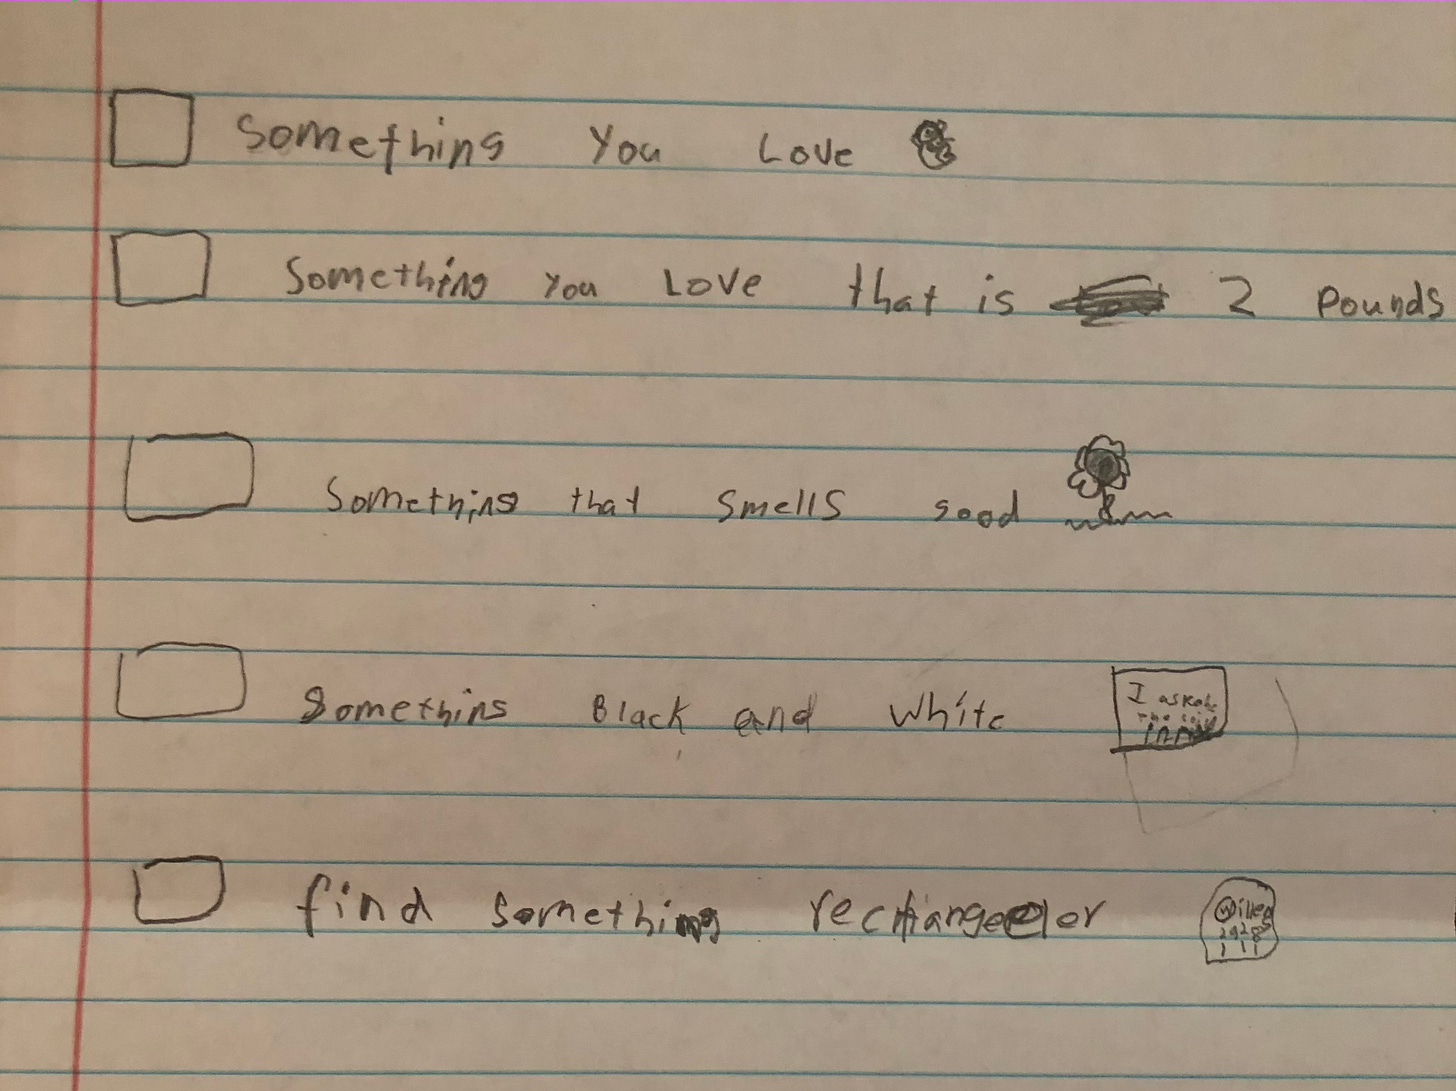 Something You Love
Something you Love that is 2 Pounds
Something that smells good
Something Black and White
I asked
find something rectiangeelor